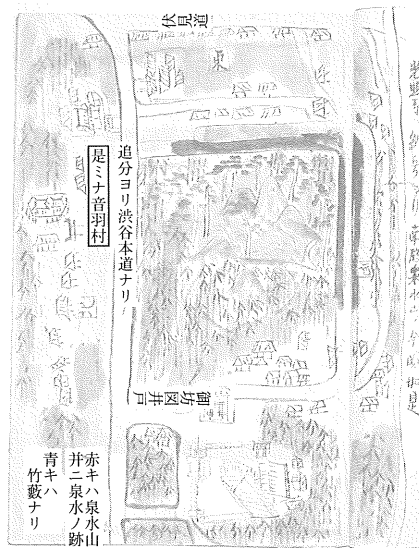 伏見道
東
追分ヨリ渋谷本道ナリ
是ミナ音羽村
御坊図井戸
赤キハ泉水山
并ニ泉水ノ跡
青キハ
竹藪ナリ